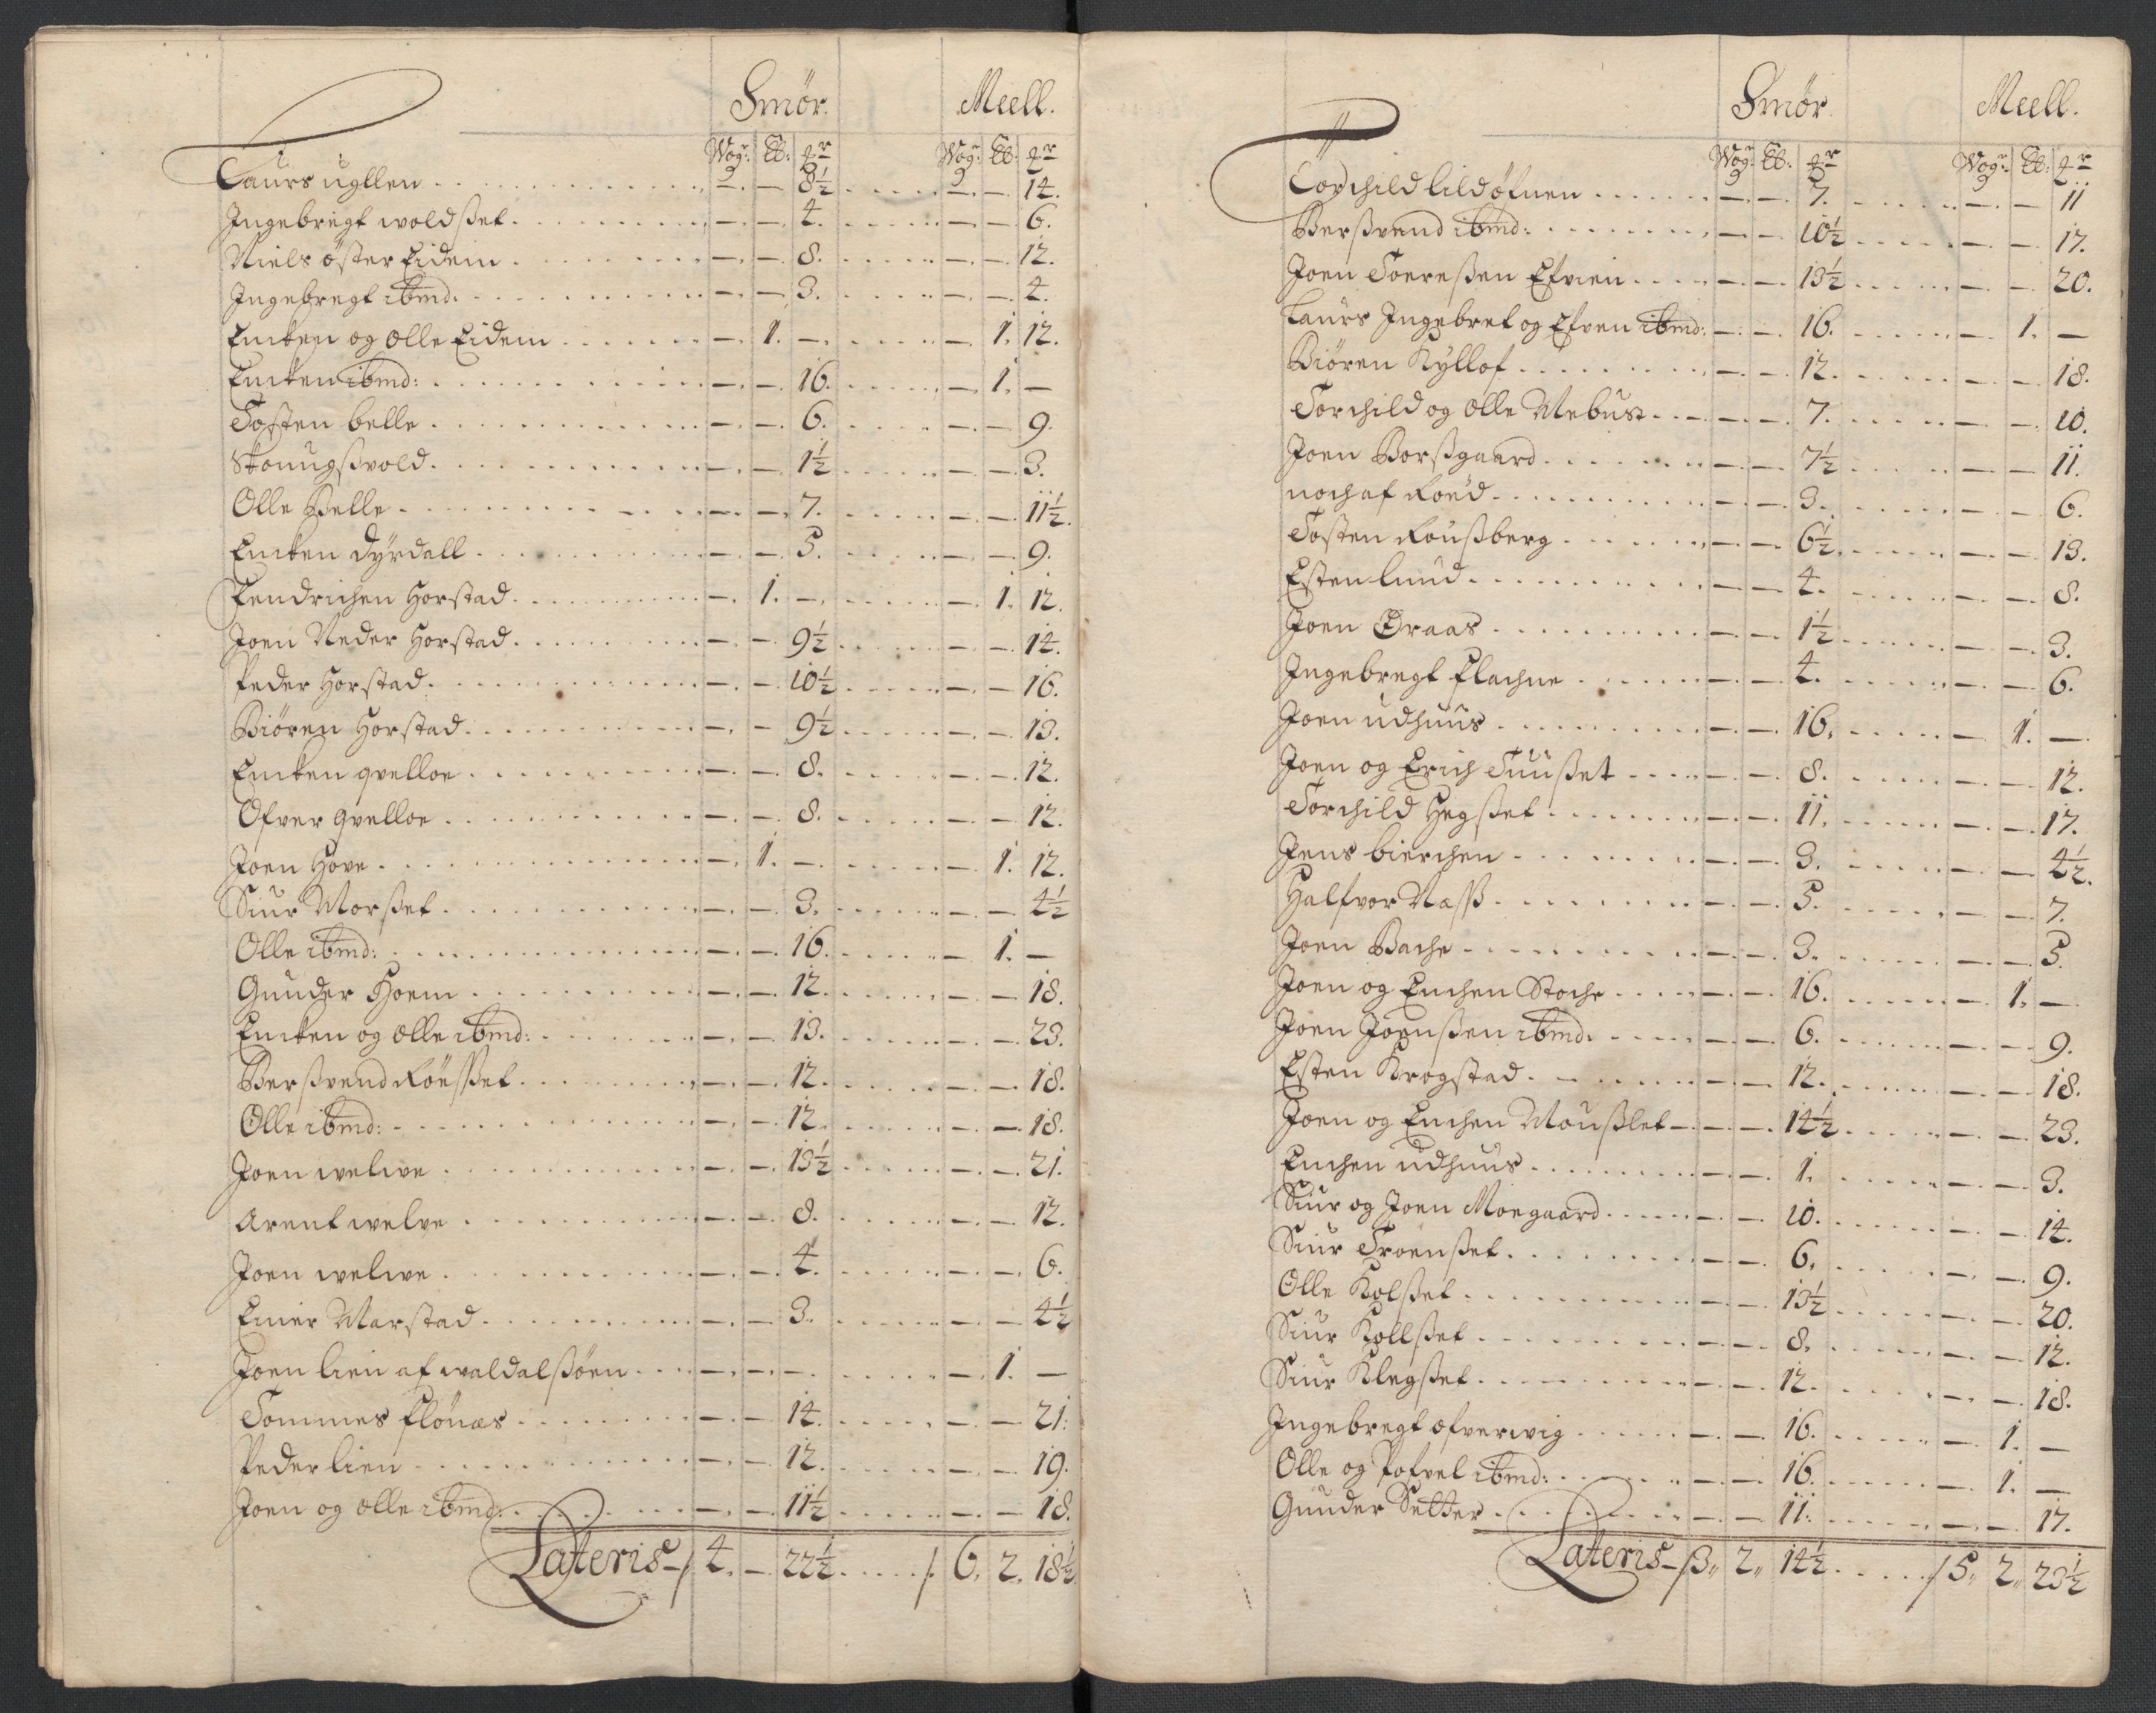 Smør. Meell.
Wog: : qr Wog: : qr
Laurs ugllen - - 8½ - - 14.
Ingebregt woldsset - - 4. - - 6.
Niels öster Eidem - - 8. - - 12.
Ingebregt ibmd. - - 3. - - 4.
Encken og olle Eidem - 1. - - 1. 12.
Encken ibmd: - - 16. - 1. -
Tosten belle - - 6. - - 9.
Skougßvold - - 1½ - - 3.
Olle Belle - - 7. - - 11½.
Encken Dyrdall - - 5. - - 9.
Hendrichen Horstad - 1. - - 1. 12.
Joen Neder Horstad - - 9½ - - 14.
Peder Horstad - - 10½ - - 16.
Biören Horstad - - 9½ - - 13.
Encken qvelloe - - 8. - - 12.
Ofver qvelloe - - 8. - - 12.
Joen Hove - 1. - - 1. 12.
Siur Morßet - - 3. - - 4½
Olle ibmd: - - 16. - 1. -
Gunder Hoem - - 12. - - 18.
Encken og olle ibmd: - - 13. - - 23.
Berßvend Röeßet - - 12. - - 18.
Olle ibmd: - - 12. - - 18.
Joen welwe - - 13½ - - 21.
Arent welve - - 8. - - 12.
Joen welwe - - 4. - - 6.
Einer Marstad - - 3. - - 4½
Joen lien af waldalßöen - - - - 1. -
Tommes flönæs - - 14. - - 21.
Peder lien - - 12. - - 19.
Joen og olle ibmd: - - 11½ - - 18.
Lateris 4. - 22½ 6. 2. 18½
Smør Meell.
Wog: : qr Wog: : qr
Torchild lildöfnen - - 7. - - 11
Berßvend ibmd: - - 10½ - - 17.
Joen Toereßen Efvien - - 13½ - - 20.
Laurs Ingebret og Efven ibmd: - - 16. - 1. -
Biören Kyllof - - 12. - - 18.
Torchild og olle Mebust - - 7. - - 10.
Joen Borßgaard - - 7½ - - 11.
noch af Roed - - 3. - - 6.
Tosten Roußberg - - 6½ - - 13.
Esten lund - - 4. - - 8.
Joen Øraas - - 1½ - - 3.
Ingebregt flachne - - 4. - - 6.
Joen udhuus - - 16. - 1. -
Joen og Erich Tuußet - - 8. - - 12.
Torchild Hegßet - - 11. - - 17.
Jens bierchen - - 3. - - 4½.
Halfvor Naß - - 5. - - 7.
Joen Bache - - 3. - - 5.
Joen og Enchen Stoche - - 16. - 1. -
Joen Joenßen ibmd. - - 6. - - 9.
Esten Krogstad - - 12. - - 18.
Joen og Enchen Moußlet - - 14½ - - 23.
Enchen udhuus - - 1. - - 3.
Siur og Joen Moegaard - - 10. - - 14.
Siur Troenßet - - 6. - - 9.
Olle Kolßet - - 13½ - - 20.
Siur Kollßet - - 8. - - 12.
Siur Klegßet - - 12. - - 18.
Ingebregt ofverwig - - 16. - 1. -
Olle og Pofvel ibmd: - - 16. - 1. -
Gunder Setter - - 11. - - 17.
Lateris 3, 2, 14½ 5, 2, 23½